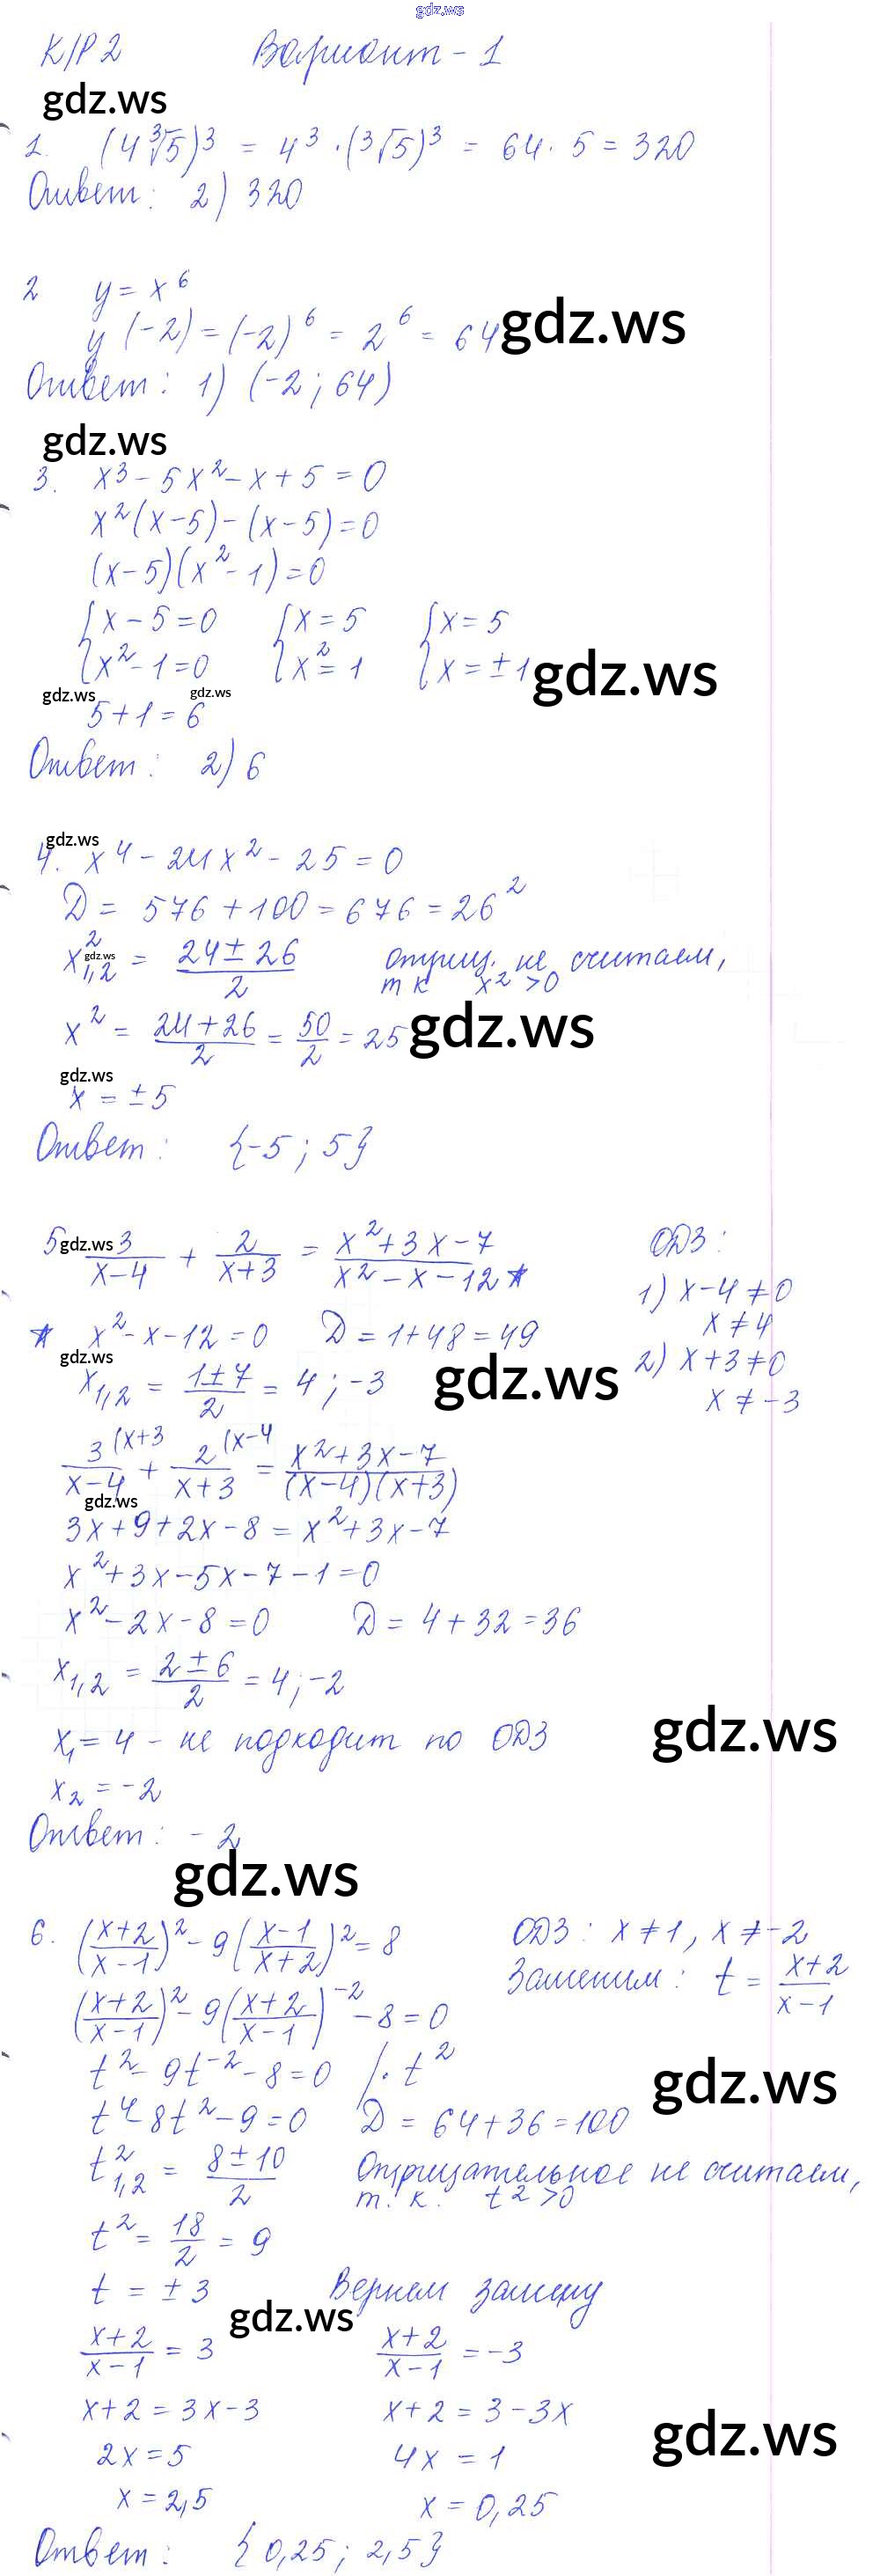 gdz.ws
К/Р 2 Вариант - 1
gdz.ws
1. (4∛5)³ = 4³ · (∛5)³ = 64 · 5 = 320
Ответ: 2) 320
2 y = x⁶
y (-2) = (-2)⁶ = 2⁶ = 64 gdz.ws
Ответ: 1) (-2; 64)
gdz.ws
3. x³ - 5x² - x + 5 = 0
x²(x-5) - (x-5) = 0
(x-5)(x²-1) = 0
{x - 5 = 0 {x = 5 {x = 5
{x² - 1 = 0 {x² = 1 {x = ±1 gdz.ws
gdz.ws gdz.ws
5 + 1 = 6
Ответ: 2) 6
gdz.ws
4. x⁴ - 24x² - 25 = 0
D = 576 + 100 = 676 = 26²
x²₁,₂ = (24 ± 26)/2 отриц. не считаем,
gdz.ws
т к x² > 0
x² = (24 + 26)/2 = 50/2 = 25 gdz.ws
gdz.ws
x = ±5
Ответ: {-5; 5}
5 gdz.ws 3/(x-4) + 2/(x+3) = (x² + 3x - 7)/(x² - x - 12) * ОДЗ:
1) x - 4 ≠ 0
x ≠ 4
* x² - x - 12 = 0 D = 1 + 48 = 49
2) x + 3 ≠ 0
x ≠ -3
gdz.ws
x₁,₂ = (1 ± 7)/2 = 4; -3 gdz.ws
3(x+3/(x-4) + 2(x-4/(x+3) = (x² + 3x - 7)/((x-4)(x+3))
gdz.ws
3x + 9 + 2x - 8 = x² + 3x - 7
x² + 3x - 5x - 7 - 1 = 0
x² - 2x - 8 = 0 D = 4 + 32 = 36
x₁,₂ = (2 ± 6)/2 = 4; -2
x₁ = 4 - не подходит по ОДЗ gdz.ws
x₂ = -2
Ответ: -2
gdz.ws
6. ((x+2)/(x-1))² - 9((x-1)/(x+2))² = 8 ОДЗ: x ≠ 1, x ≠ -2
Заменим: t = (x+2)/(x-1)
((x+2)/(x-1))² - 9((x+2)/(x-1))⁻² - 8 = 0
t² - 9t⁻² - 8 = 0 /· t² gdz.ws
t⁴ - 8t² - 9 = 0 D = 64 + 36 = 100
t²₁,₂ = (8 ± 10)/2 Отрицательное не считаем,
т. к. t² > 0
t² = 18/2 = 9
t = ±3 Вернем замену
gdz.ws
(x+2)/(x-1) = 3 (x+2)/(x-1) = -3
x + 2 = 3x - 3 x + 2 = 3 - 3x gdz.ws
2x = 5 4x = 1
x = 2,5 x = 0,25
Ответ: {0,25; 2,5}